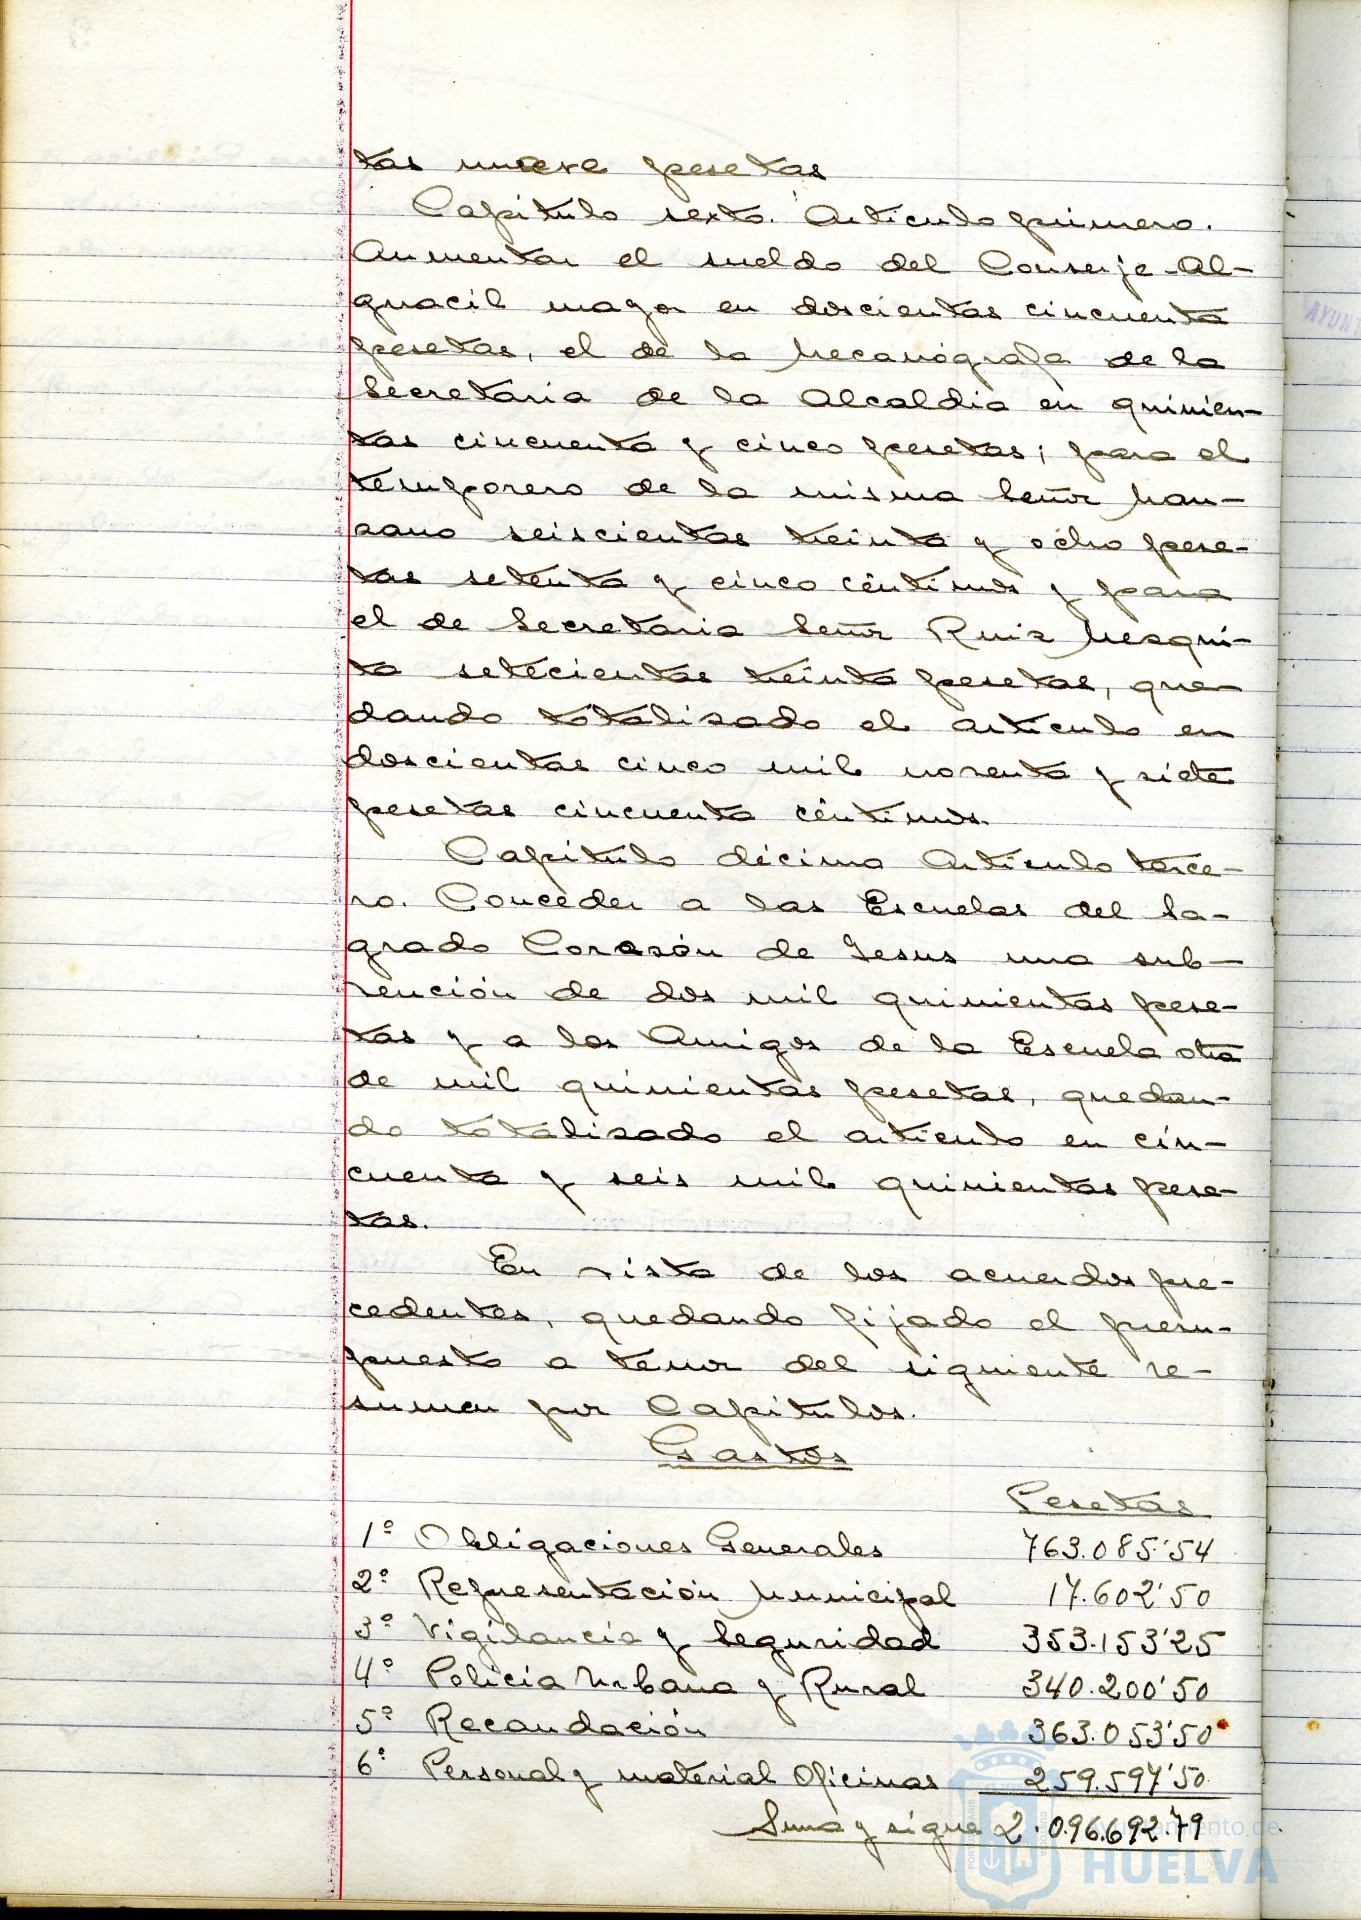 tas nueve pesetas
Capítulo sexto. Artículo primero.
Aumentar el sueldo del Conserje-Al-
guacil mayor en doscientas cincuenta
pesetas, el de la Mecanógrafa de la
Secretaria de la Alcaldia en quinien-
tas cincuenta y cinco pesetas; para el
temporero de la misma Señor Man-
zano seiscientas treinta y ocho pese-
tas setenta y cinco céntimos y para
el de Secretaria Señor Ruiz Mesqui-
ta setecientas treinta pesetas, que-
dando totalizado el artículo en
doscientas cinco mil noventa y siete
pesetas cincuenta céntimos.
Capítulo décimo Artículo terce-
ro. Conceder a las Escuelas del Sa-
grado Corazón de Jesus una sub-
vención de dos mil quinientas pese-
tas y a los Amigos de la Escuela otra
de mil quinientas pesetas, quedan-
do totalizado el artículo en cin-
cuenta y seis mil quinientas pese-
tas.
En vista de los acuerdos pre-
cedentes, quedando fijado el presu-
puesto a tenor del siguiente re-
sumen por Capítulos.
Gastos
Pesetas
1º Obligaciones Generales 763.085'54
2º Representación Municipal 17.602'50
3º Vigilancia y Seguridad 353.153'25
4º Policía Urbana y Rural 340.200'50
5º Recaudación 363.053'50
6º Personal y material Oficinas 259.597'50
Suma y sigue 2.096.692.79
Ayuntamiento de
HUELVA